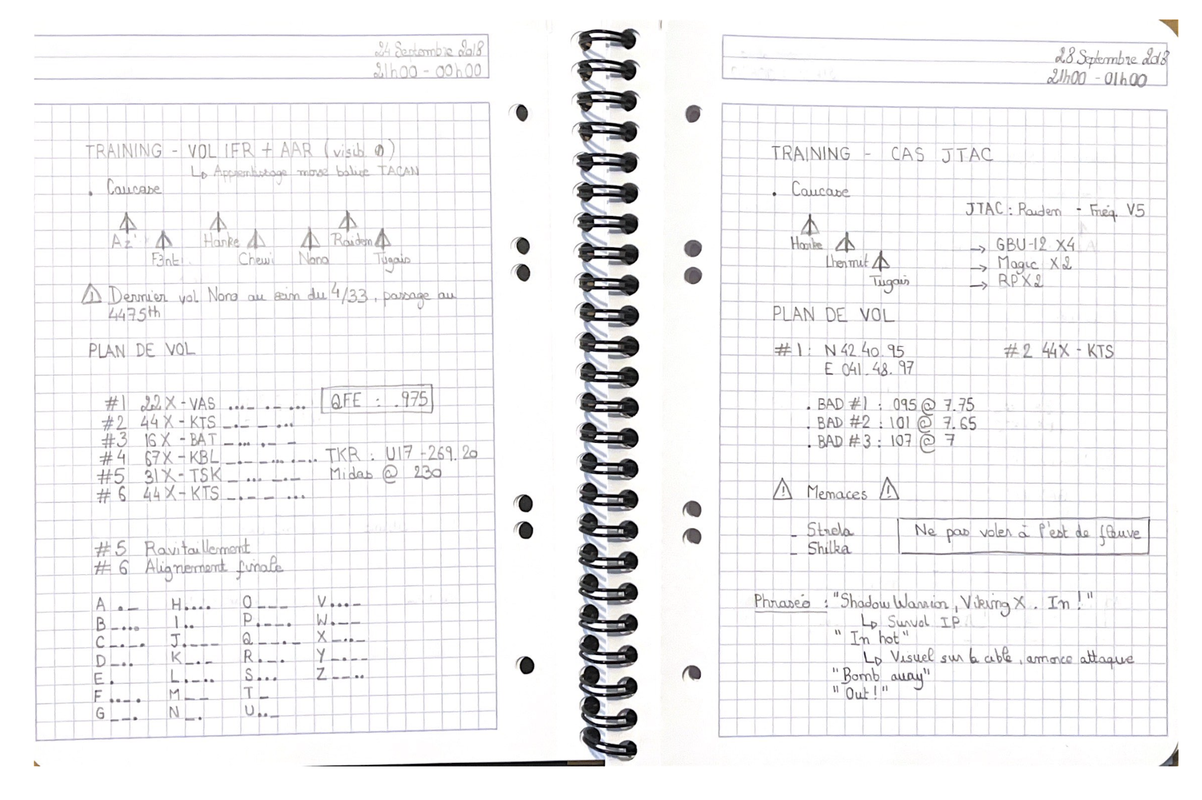 24 Septembre 2018
21h00 - 00h00
TRAINING - VOL IFR + AAR (visib 0)
↳ Apprentissage morse balise TACAN
. Caucase
Az' Hanke Raiden
F3nti Chewi Nono Tugais
⚠ Dernier vol Nono au sein du 4/33, passage au
4475th
PLAN DE VOL
#1 22X-VAS ...- .- ... QFE : .975
#2 44X-KTS -.- - ...
#3 16X-BAT -... .- -
#4 67X-KBL -.- -... .-.. TKR : U17-269.20
#5 31X-TSK - ... -.- Midas @ 230
#6 44X-KTS -.- - ...
#5 Ravitaillement
#6 Alignement finale
A .- H .... O --- V ...-
B -... I .. P .--. W .--
C -.-. J .--- Q --.- X -..-
D -.. K -.- R .-. Y -.--
E . L .-.. S ... Z --..
F ..-. M -- T -
G --. N -. U ..-
28 Septembre 2018
21h00 - 01h00
TRAINING - CAS JTAC
. Caucase
JTAC : Raiden - Fréq. V5
Hanke → GBU-12 X4
Lhermit → Magic X2
Tugais → RP X2
PLAN DE VOL
#1 : N 42 40. 95 #2 44X-KTS
E 041. 48. 97
. BAD #1 : 095 @ 7.75
. BAD #2 : 101 @ 7.65
. BAD #3 : 107 @ 7
⚠ Menaces ⚠
- Strela Ne pas voler à l'est de fleuve
- Shilka
Phrases : "Shadow Warrior, Viking X. In !"
↳ Survol IP.
"In hot"
↳ Visuel sur la cible, amorce attaque
"Bomb away"
"Out !"